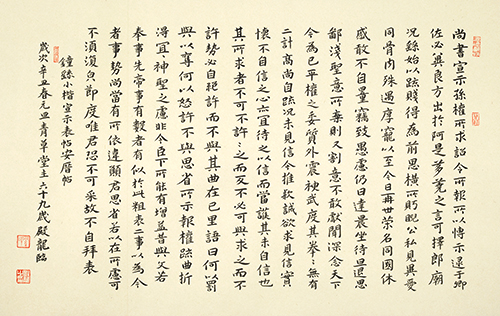 尚書宣示孫權所求詔令所報所以博示逮于卿
佐必冀良方出於阿是芻蕘之言可擇郎廟
況繇始以疏賤得為前恩橫所眄睨公私見異愛
同骨肉殊遇厚寵以至今日再世榮名同國休
慼敢不自量竊致愚慮仍日達晨坐待旦退思
鄙淺聖意所棄則又割意不敢獻聞深念天下
今為已平權之委質外震神武度其拳〻無有
二計高尚自疏況未見信今推款誠欲求見信實
懷不自信之心亦宜待之以信而當護其未自信也
其所求者不可不許〻之而反不必可與求之而不
許勢必自絕許而不與其曲在己里語曰何以罰
與以奪何以怒許不與思省所示報權疏曲折
得宜宜神聖之慮非今臣下所能有增益昔與文若
奉事先帝事有數者有似於此粗表二事以為今
者事勢尚當有所依違願君思省若以在所慮可
不須復貌節度唯君恐不可采故不自拜表
鍾繇小楷宣示表帖安厝帖
歲次辛丑春元旦青草堂主六十九歲殿龍臨